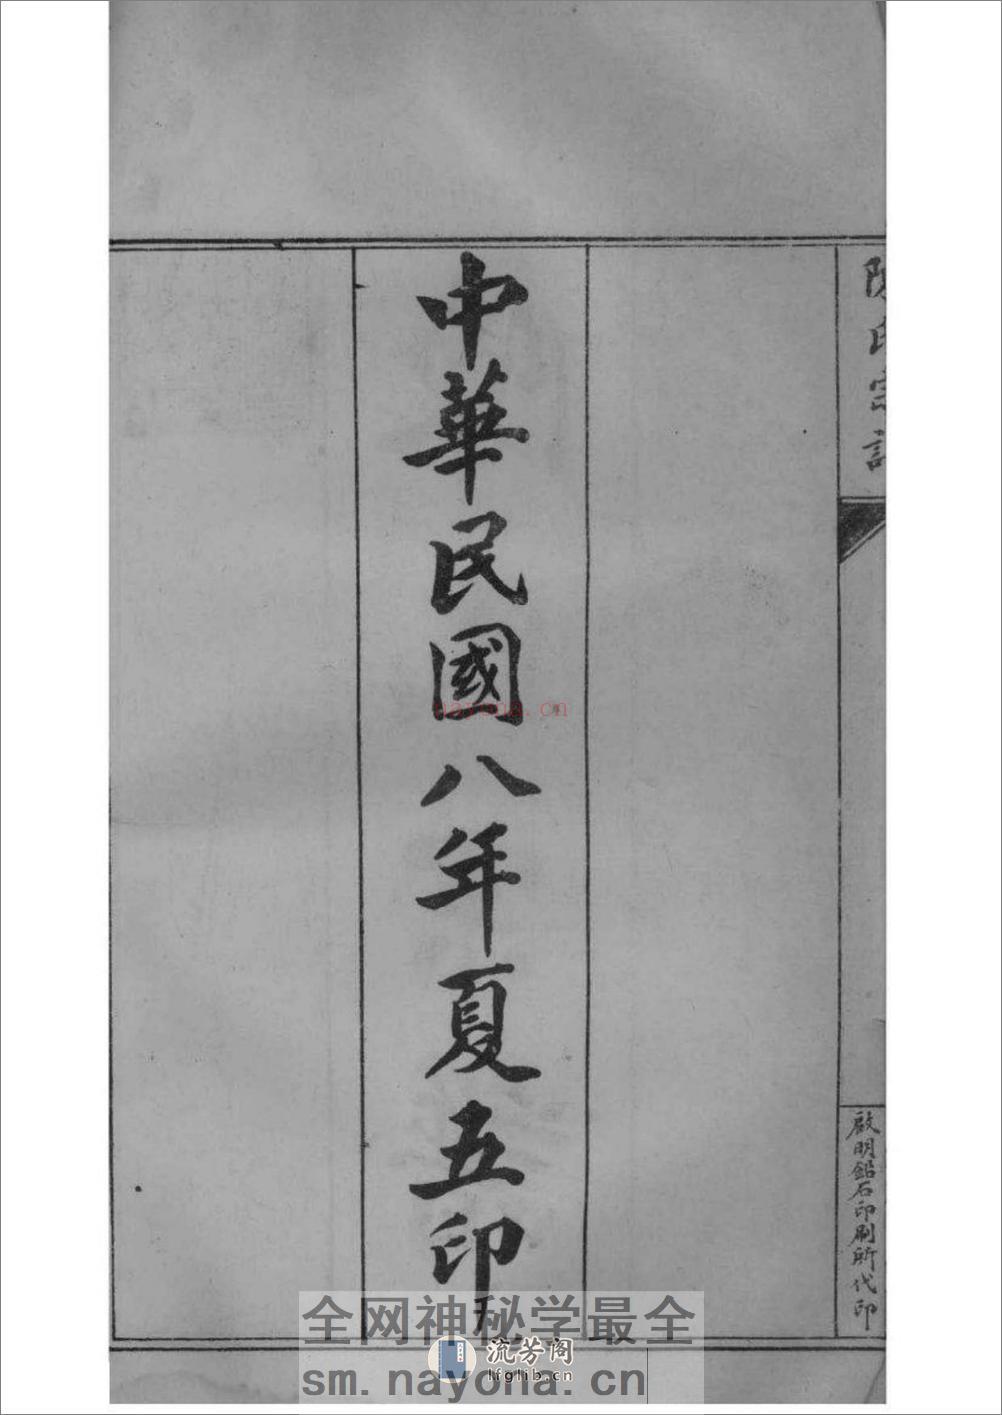 陳氏宗譜
啟明鉛石印刷所代印
中華民國八年夏五印
nayona.cn
全网神秘学最全
流芳阁
lfglib.cn
sm.nayona.cn